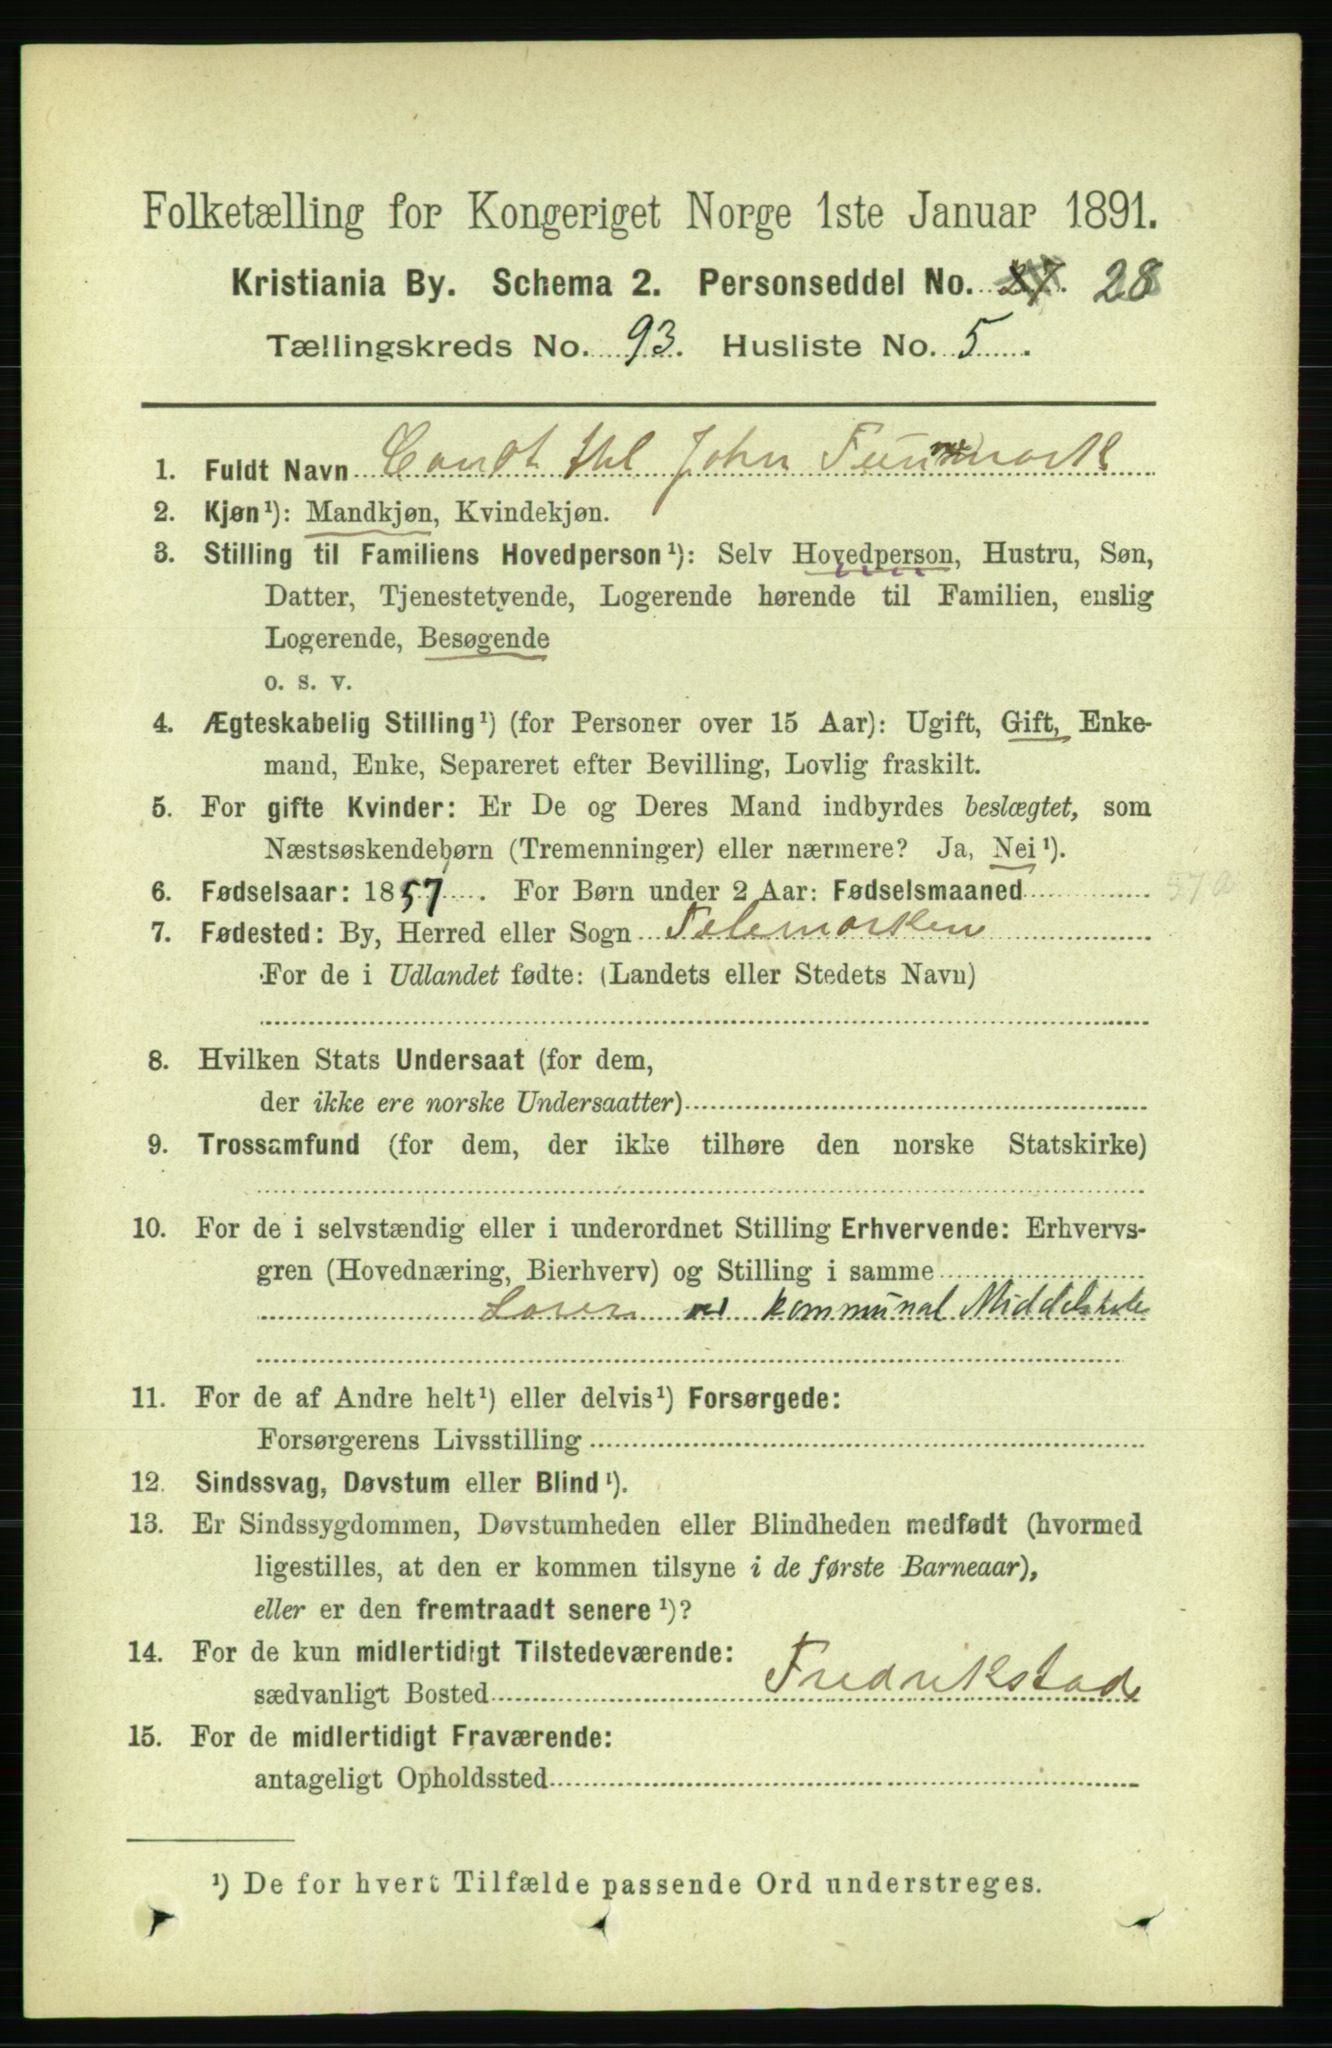 Folketælling for Kongeriget Norge 1ste Januar 1891.
Kristiania By. Schema 2. Personseddel No. 27. 28
Tællingskreds No. 93. Husliste No. 5
1. Fuldt Navn John
2. Kjøn¹): Mandkjøn, Kvindekjøn.
3. Stilling til Familiens Hovedperson¹): Selv Hovedperson, Hustru, Søn,
Datter, Tjenestetyende, Logerende hørende til Familien, enslig
Logerende, Besøgende
o. s. v.
4. Ægteskabelig Stilling¹) (for Personer over 15 Aar): Ugift, Gift, Enke-
mand, Enke, Separeret efter Bevilling, Lovlig fraskilt.
5. For gifte Kvinder: Er De og Deres Mand indbyrdes beslægtet, som
Næstsøskendebørn (Tremenninger) eller nærmere? Ja, Nei¹).
6. Fødselsaar: 1857. For Børn under 2 Aar: Fødselsmaaned
7. Fødested: By, Herred eller Sogn Telemarken
For de i Udlandet fødte: (Landets eller Stedets Navn)
8. Hvilken Stats Undersaat (for dem,
der ikke ere norske Undersaatter)
9. Trossamfund (for dem, der ikke tilhøre den norske Statskirke)
10. For de i selvstændig eller i underordnet Stilling Erhvervende: Erhvervs-
gren (Hovednæring, Bierhverv) og Stilling i samme
kommunal Middelskole
11. For de af Andre helt¹) eller delvis¹) Forsørgede:
Forsørgerens Livsstilling
12. Sindssvag, Døvstum eller Blind¹).
13. Er Sindssygdommen, Døvstumheden eller Blindheden medfødt (hvormed
ligestilles, at den er kommen tilsyne i de første Barneaar),
eller er den fremtraadt senere¹)?
14. For de kun midlertidigt Tilstedeværende:
sædvanligt Bosted Fredrikstad
15. For de midlertidigt Fraværende:
antageligt Opholdssted
¹) De for hvert Tilfælde passende Ord understreges.